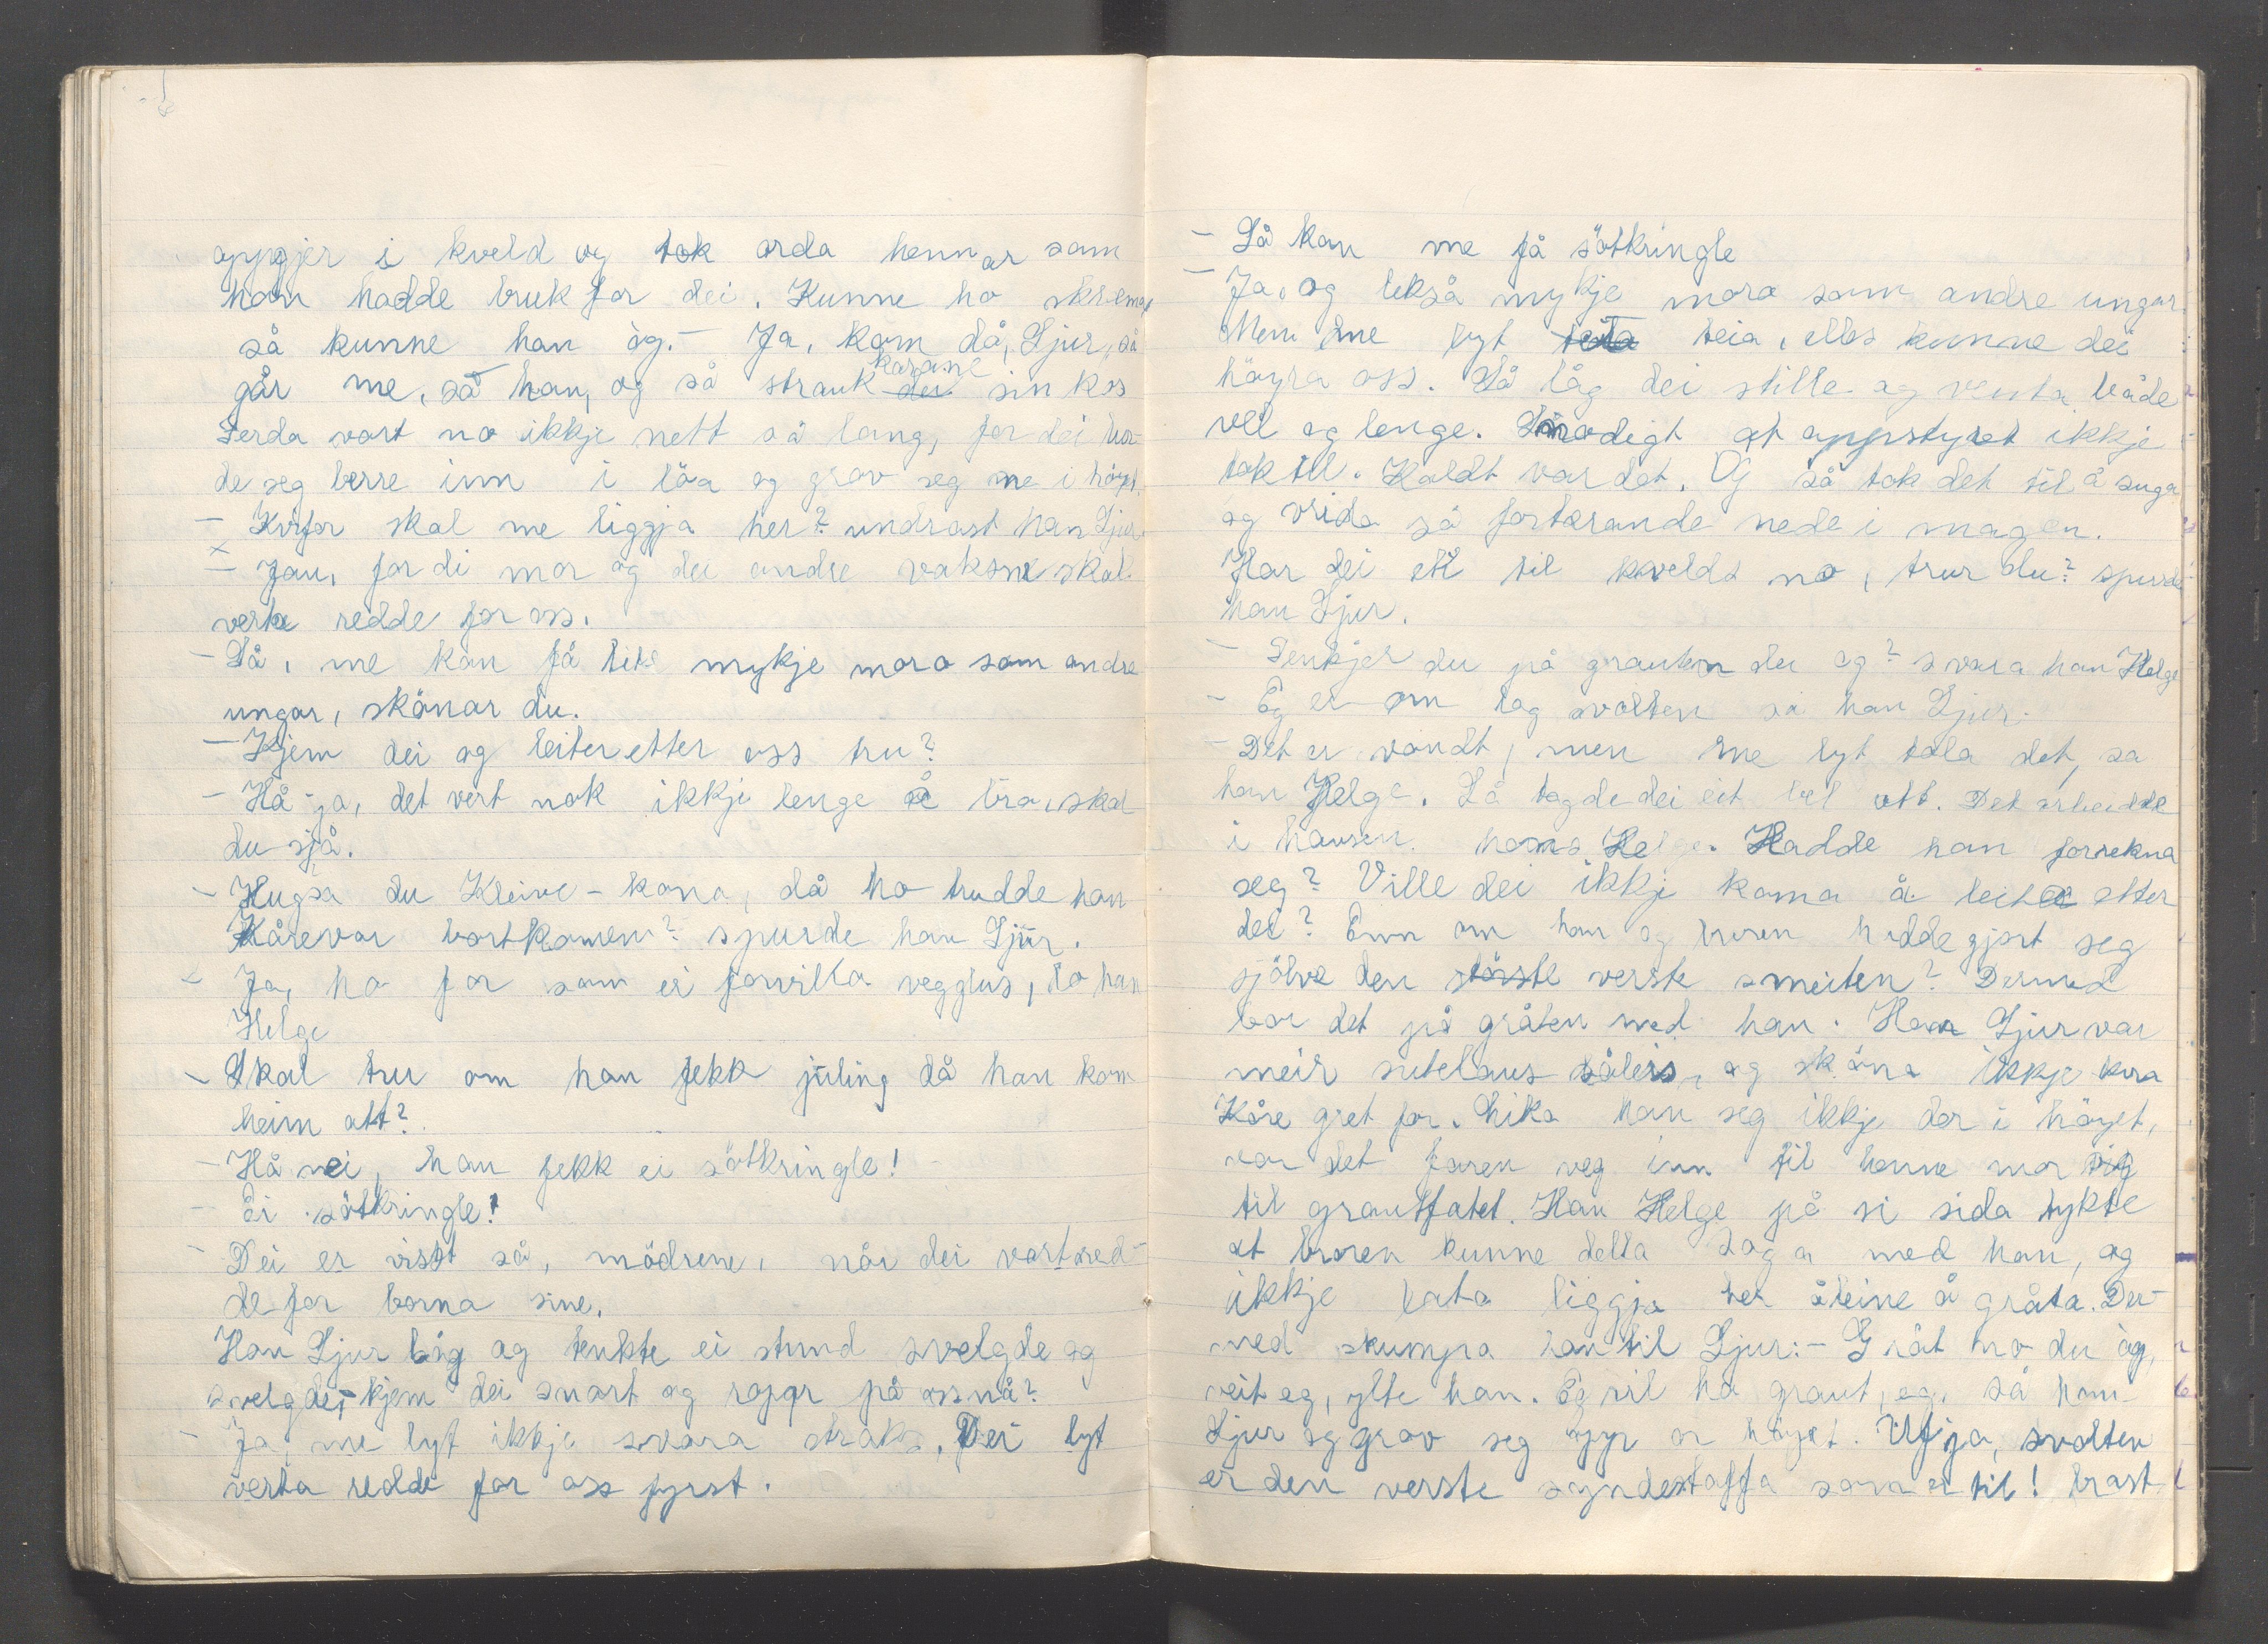 oppgjer i kveld og tok orda hennar som
han hadde bruk for dei. Kunne ho skrema
så kunne han òg. - Ja, kom då, Sjur, så
går me, sa han, og så strauk karane sin kos
Ferda vart no ikkje nett så lang, for dei tur-
de seg berre inn i löa og grov seg ne i höyet.
- Kvifor skal me liggja her? undrast han Sjur
- Jau, fordi mor og dei andre vaksne skal
verta redde for oss.
- Då, me kan få like mykje moro som andre
ungar, skönar du.
- Kjem dei og leiter etter oss tru?
- Hå-ja, det vert nok ikkje lenge å bia, skal
du sjå.
- Hugsa du Kleive-kona, då ho trudde han
Kåre var bortkomen? spurde han Sjur.
- Ja, ho for som ei forvilla vegglus, lo han
Helge
- Skal tru om han fekk juling då han kom
heim att?
- Hå nei, han fekk ei sötkringle!
- Ei sötkringle!
- Dei er visst så, mödrene, når dei vart red-
de for borna sine.
Han Sjur låg og tenkte ei stund svelgde og
svelgde, kjem dei snart og ropar på oss nå?
- Ja, me lyt ikkje svara straks. Dei lyt
verta redde for oss fyrst.
- Då kan me få sötkringle
- Ja, og likså mykje moro som andre ungar.
Men me lyt teia, elles kunne dei
höyra oss. Så låg dei stille og venta både
vel og lenge. Småodigt at oppstyret ikkje
tok til. Kaldt var det. Og så tok det til å suga
og vrida så fortærande nede i magen.
Har dei ete til kvelds no, trur du? spurde
han Sjur.
- Tenkjer du på grauten du og? svara han Helge
- Eg er om lag svolten sa han Sjur.
- Det er vondt, men me lyt tola det, sa
han Helge. Så tagde dei eit bel att. Det arbeidde
i hausen hans Helge. Hadde han forrekna
seg? Ville dei ikkje koma å leita etter
dei? Enn om han og broren hadde gjort seg
sjölve den störste verste smeiten? Dermed
bar det på gråten med han. Han Sjur var
meir sutelaus såleis, og sköna ikkje kva
Kåre gret for. Lika han seg ikkje der i höyet,
var det faren veg inn til henne mor og
til grautfatet. Han Helge på si sida tykte
at broren kunne delta laga med han, og
ikkje lata liggja her åleine å gråta. Der-
med skumpa han til Sjur: - Gråt no du òg,
veit eg, ylte han. Eg vil ha graut, eg, sa han
Sjur og grov seg opp or höyet. Uf ja, svolten
er den verste syndestraffa som er til! brast